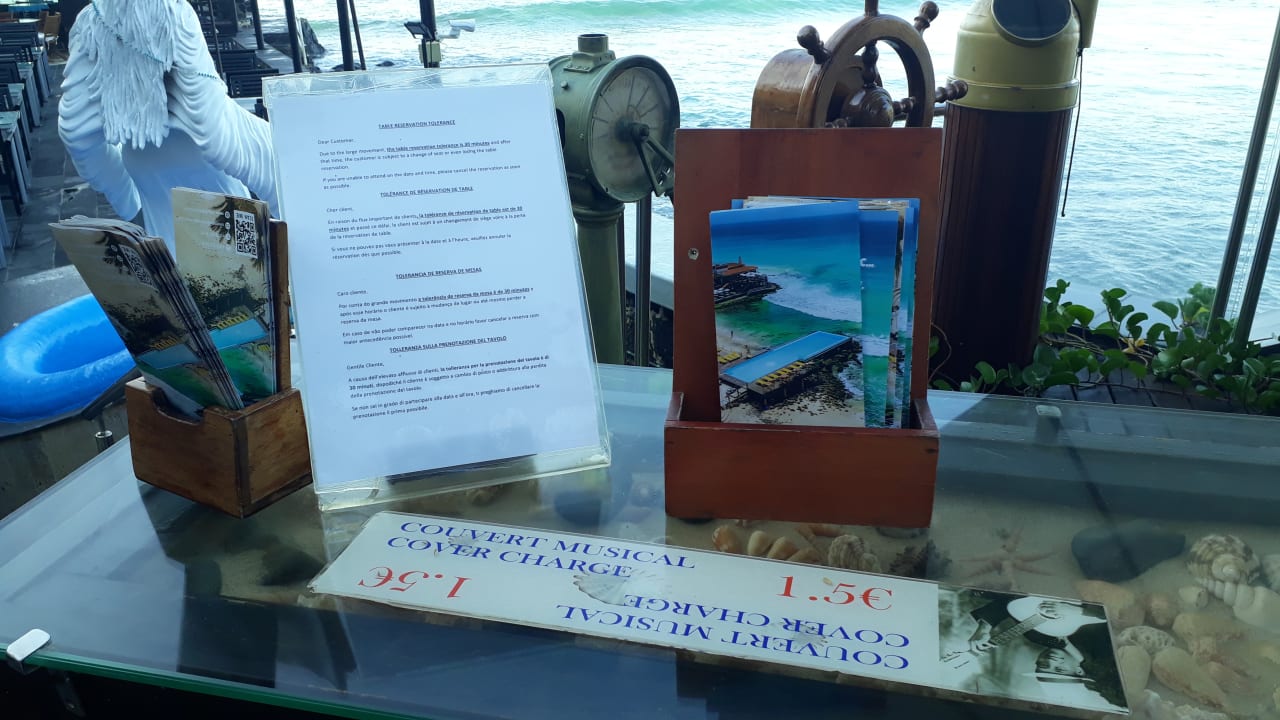 TABLE RESERVATION TOLERANCE
Dear Customer,
Due to the large movement, the table reservation tolerance is 30 minutes and after
that time, the customer is subject to a change of seat or even losing the table
reservation.
If you are unable to attend on the date and time, please cancel the reservation as soon
as possible.
TOLÉRANCE DE RÉSERVATION DE TABLE
Cher client,
En raison du flux important de clients, la tolérance de réservation de table est de 30
minutes et passé ce délai, le client est sujet à un changement de siège voire à la perte
de la réservation de table.
Si vous ne pouvez pas vous présenter à la date et à l'heure, veuillez annuler la
réservation dès que possible.
TOLERANCIA DE RESERVA DE MESAS
Caro cliente,
Por conta do grande movimento a tolerância de reserva de mesa é de 30 minutos e
após esse horário o cliente é sujeito à mudança de lugar ou até mesmo perder a
reserva da mesa.
Em caso de não poder comparecer na data e no horário favor cancelar a reserva com
maior antecedência possível.
TOLLERANZA SULLA PRENOTAZIONE DEL TAVOLO
Gentile Cliente,
A causa dell'elevato afflusso di clienti, la tolleranza per la prenotazione del tavolo è di
30 minuti, dopodiché il cliente è soggetto a cambio di posto o addirittura alla perdita
della prenotazione del tavolo.
Se non sei in grado di partecipare alla data e all'ora, ti preghiamo di cancellare la
prenotazione il prima possibile.
COUVERT MUSICAL
COVER CHARGE
1.5€
COUVERT MUSICAL
COVER CHARGE
1.5€